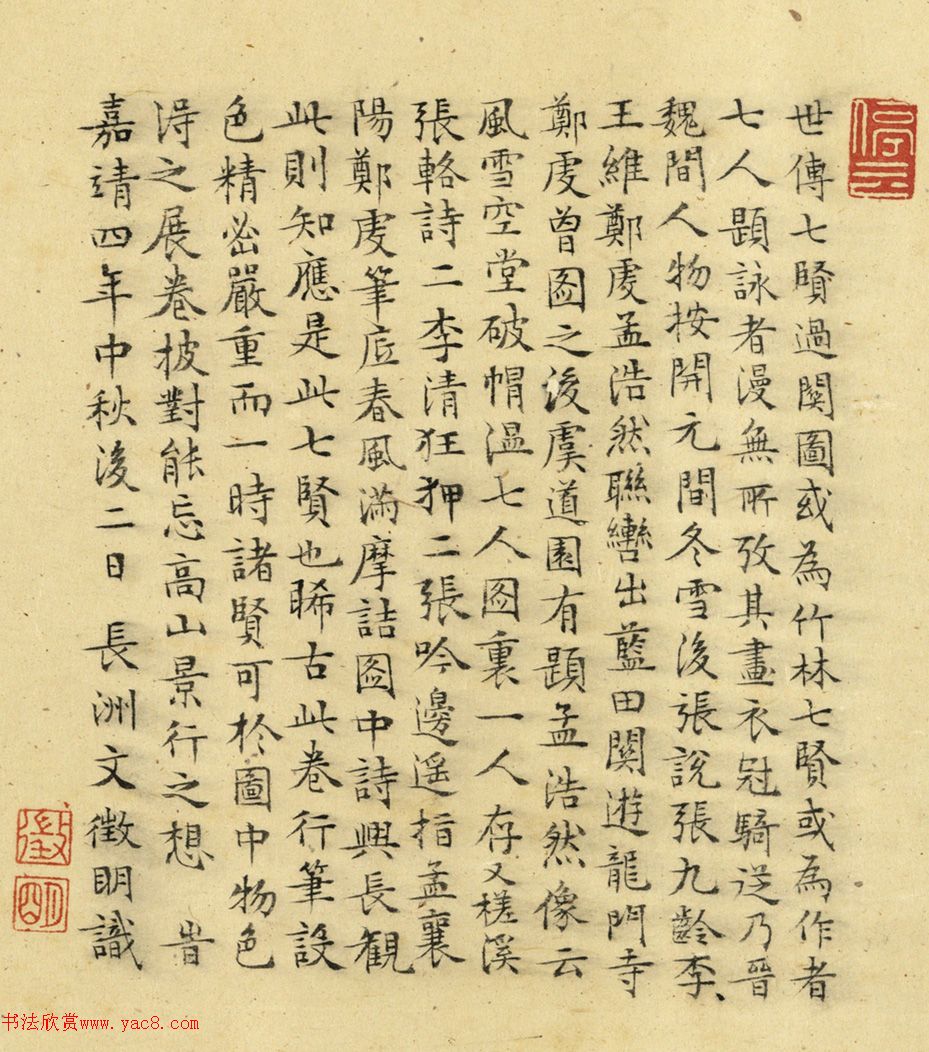 停云
世傳七賢過関圖或為竹林七賢或為作者
七人題詠者漫無所攷其畫衣冠騎從乃晉
魏間人物按開元間冬雪後張說張九齡李
王維鄭虔孟浩然聯轡出藍田関遊龍門寺
鄭虔曾圖之後虞道園有題孟浩然像云
風雪空堂破帽溫七人圖裏一人存又槎溪
張輅詩二李清狂狎二張吟邊遥指孟襄
陽鄭虔筆底春風滿摩詰圖中詩興長觀
此則知應是此七賢也晞古此卷行筆設
色精密嚴重而一時諸賢可於圖中物色
淂之展卷披對能忘高山景行之想 旹
嘉靖四年中秋後二日 長洲文徵明識
徵
明
书法欣赏www.yac8.com